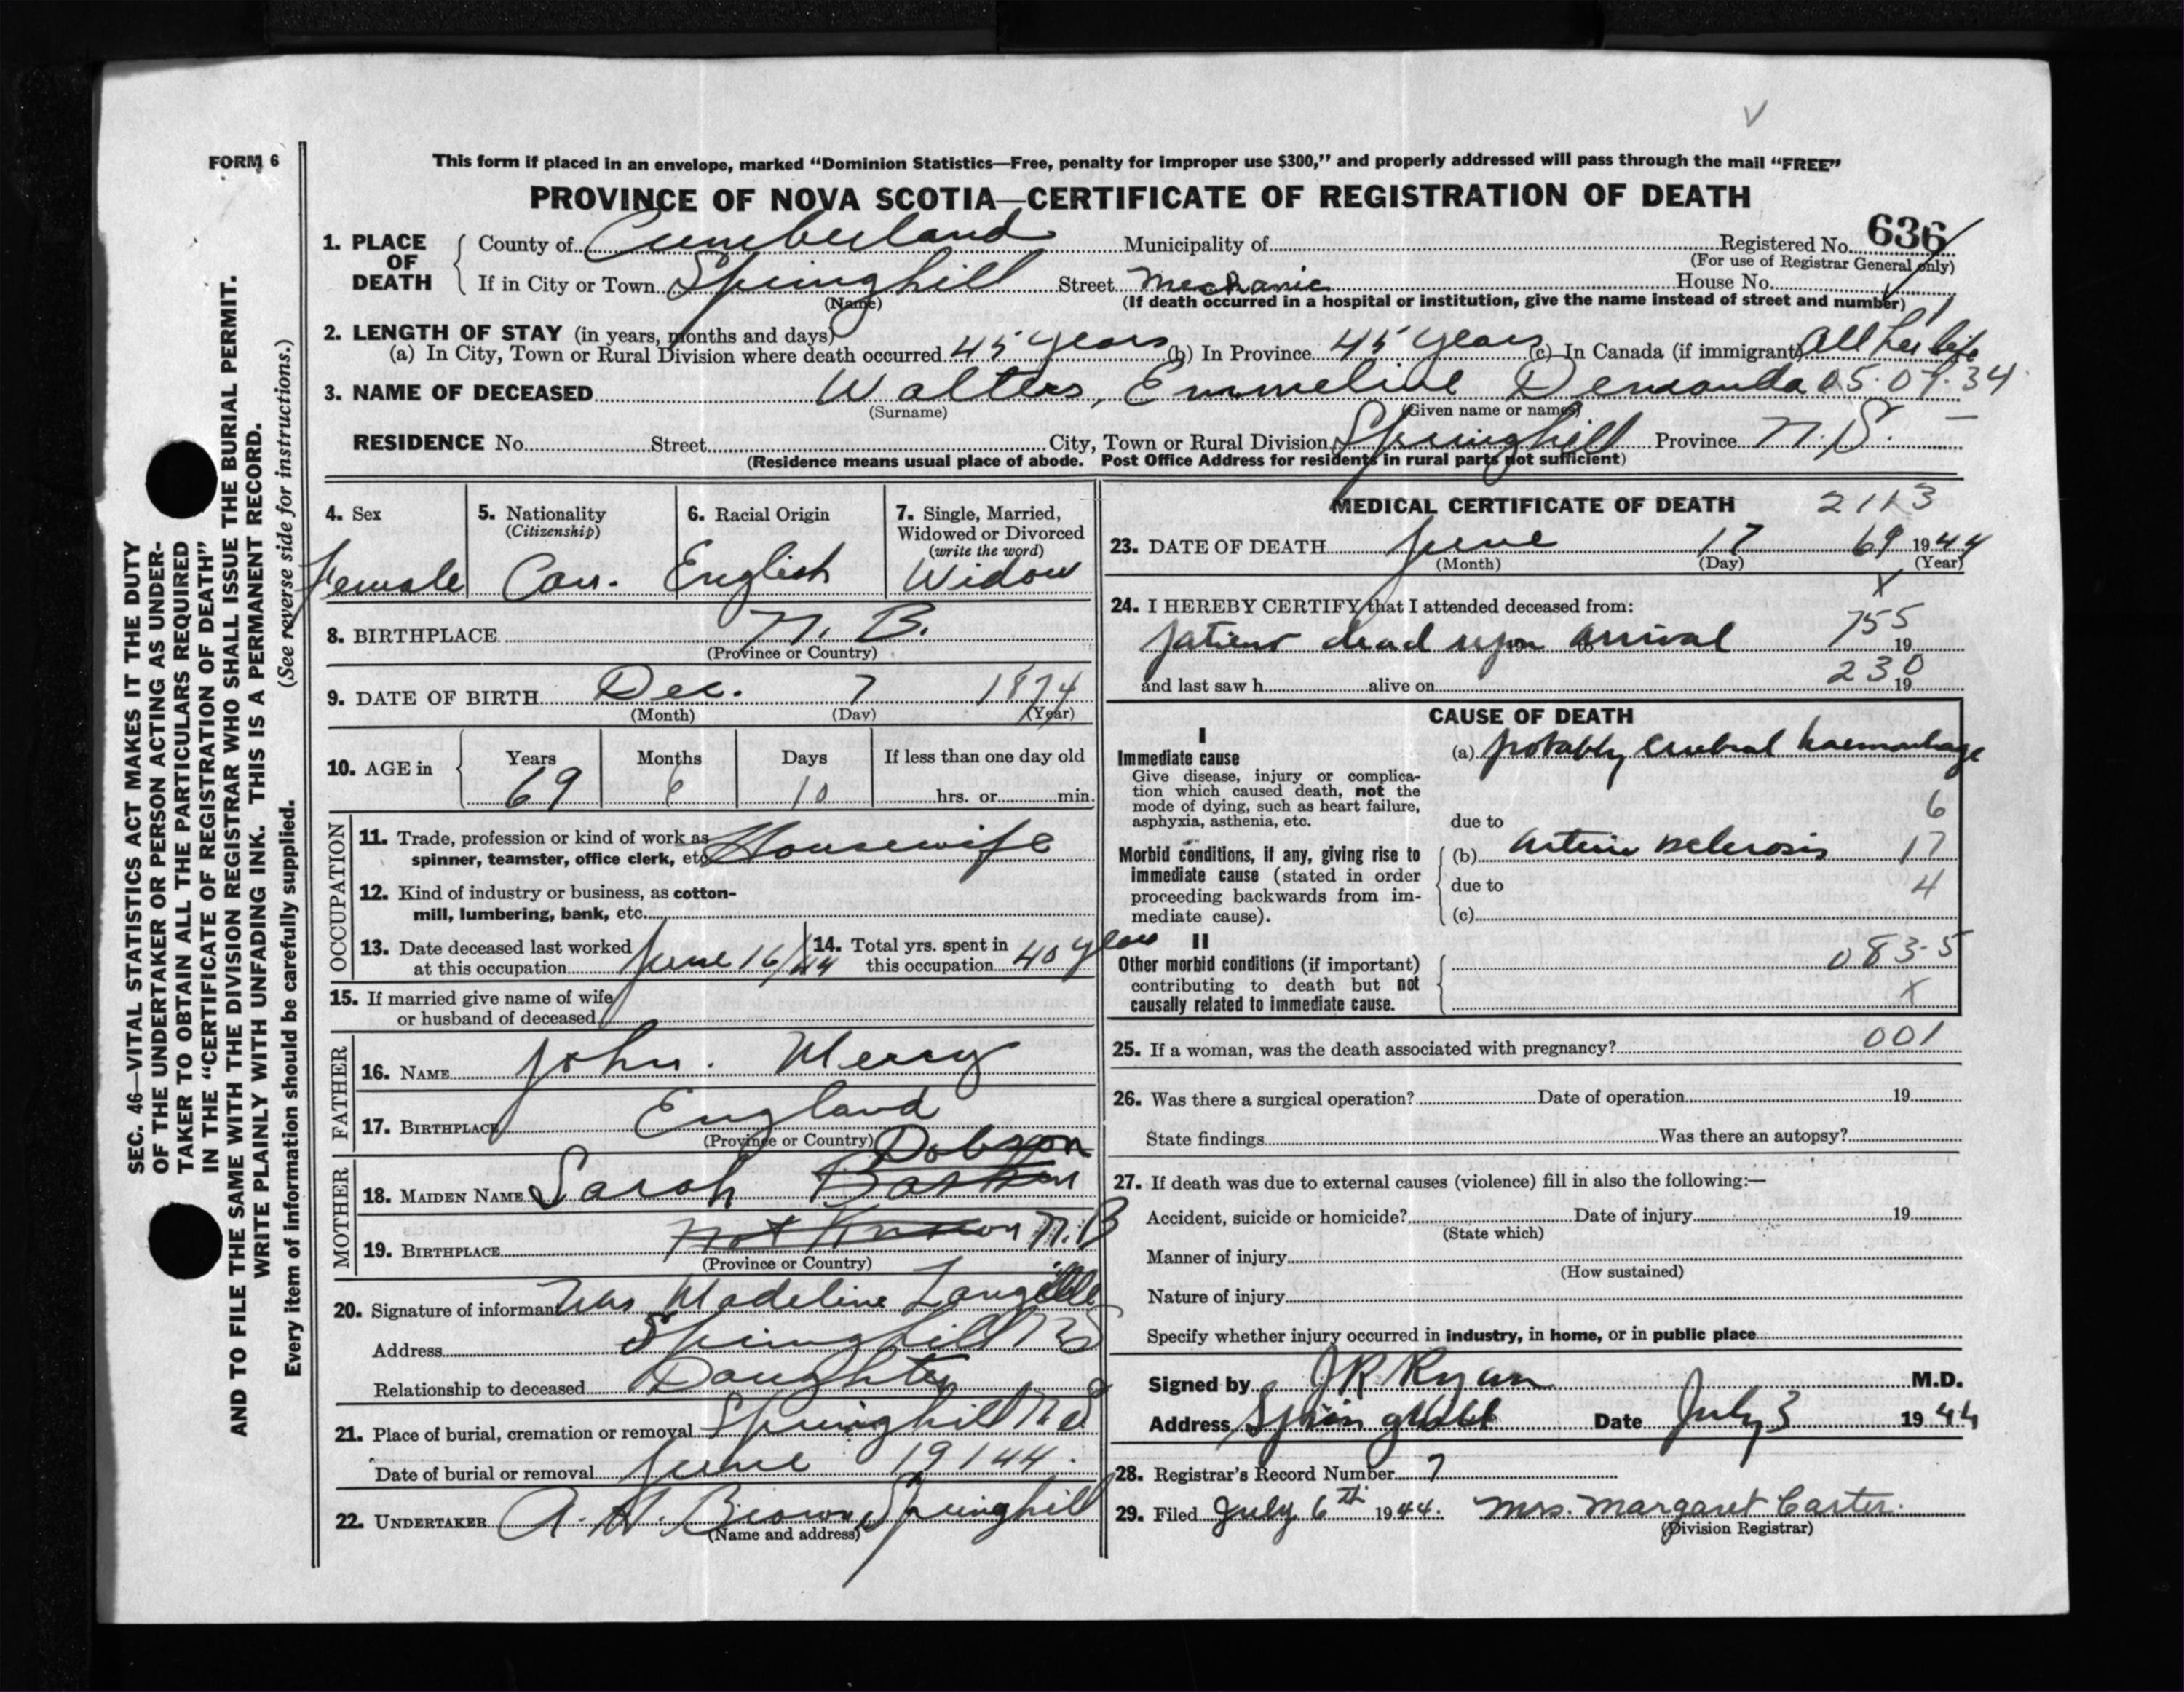 FORM 6
This form if placed in an envelope, marked “Dominion Statistics—Free, penalty for improper use $300,” and properly addressed will pass through the mail “FREE”
PROVINCE OF NOVA SCOTIA—CERTIFICATE OF REGISTRATION OF DEATH
1. PLACE OF DEATH
County of Cumberland Municipality of Registered No. 636
(For use of Registrar General only)
If in City or Town Springhill Street Mechanic House No.
(Name) (If death occurred in a hospital or institution, give the name instead of street and number)
2. LENGTH OF STAY (in years, months and days)
(a) In City, Town or Rural Division where death occurred 45 years (b) In Province 45 years (c) In Canada (if immigrant) All her life
3. NAME OF DECEASED Walters, Emmeline 05.07.34
(Surname) (Given name or names)
RESIDENCE No. Street City, Town or Rural Division Springhill Province N.S.
(Residence means usual place of abode. Post Office Address for residents in rural parts not sufficient)
4. Sex Female
5. Nationality (Citizenship) Can.
6. Racial Origin English
7. Single, Married, Widowed or Divorced (write the word) Widow
8. BIRTHPLACE N. B.
(Province or Country)
9. DATE OF BIRTH Dec. 7 1874
(Month) (Day) (Year)
10. AGE in Years Months Days If less than one day old
69 6 10 hrs. or min.
OCCUPATION
11. Trade, profession or kind of work as spinner, teamster, office clerk, etc. Housewife
12. Kind of industry or business, as cotton-mill, lumbering, bank, etc.
13. Date deceased last worked at this occupation June 16/44
14. Total yrs. spent in this occupation 40 years
15. If married give name of wife or husband of deceased
FATHER
16. NAME John. Merry
17. BIRTHPLACE England
(Province or Country)
MOTHER
Dobson
18. MAIDEN NAME Sarah
19. BIRTHPLACE Not Known N.B
(Province or Country)
20. Signature of informant Mrs Madeline Langille
Address Springhill NS
Relationship to deceased Daughter
21. Place of burial, cremation or removal Springhill N.S
Date of burial or removal June 19/44.
22. UNDERTAKER A. H. Brown Springhill
(Name and address)
MEDICAL CERTIFICATE OF DEATH 2113
23. DATE OF DEATH June 17 69 1944
(Month) (Day) (Year)
X
24. I HEREBY CERTIFY that I attended deceased from:
patient dead upon arrival 755 19
and last saw h alive on 230 19
CAUSE OF DEATH
I
Immediate cause
Give disease, injury or complication which caused death, not the mode of dying, such as heart failure, asphyxia, asthenia, etc.
(a) probably cerebral haemorrhage
6
due to
Morbid conditions, if any, giving rise to immediate cause (stated in order proceeding backwards from immediate cause).
(b) arterio sclerosis 17
due to 4
(c)
II
Other morbid conditions (if important) contributing to death but not causally related to immediate cause.
083-5
X
25. If a woman, was the death associated with pregnancy? 001
26. Was there a surgical operation? Date of operation 19
State findings Was there an autopsy?
27. If death was due to external causes (violence) fill in also the following:—
Accident, suicide or homicide? Date of injury 19
(State which)
Manner of injury
(How sustained)
Nature of injury
Specify whether injury occurred in industry, in home, or in public place
Signed by J R Ryan M.D.
Address Springhill Date July 3 1944
28. Registrar's Record Number 7
29. Filed July 6th 1944. Mrs. Margaret Carter.
(Division Registrar)
SEC. 46—VITAL STATISTICS ACT MAKES IT THE DUTY
OF THE UNDERTAKER OR PERSON ACTING AS UNDER-
TAKER TO OBTAIN ALL THE PARTICULARS REQUIRED
IN THE “CERTIFICATE OF REGISTRATION OF DEATH”
AND TO FILE THE SAME WITH THE DIVISION REGISTRAR WHO SHALL ISSUE THE BURIAL PERMIT.
WRITE PLAINLY WITH UNFADING INK. THIS IS A PERMANENT RECORD.
Every item of information should be carefully supplied. (See reverse side for instructions.)